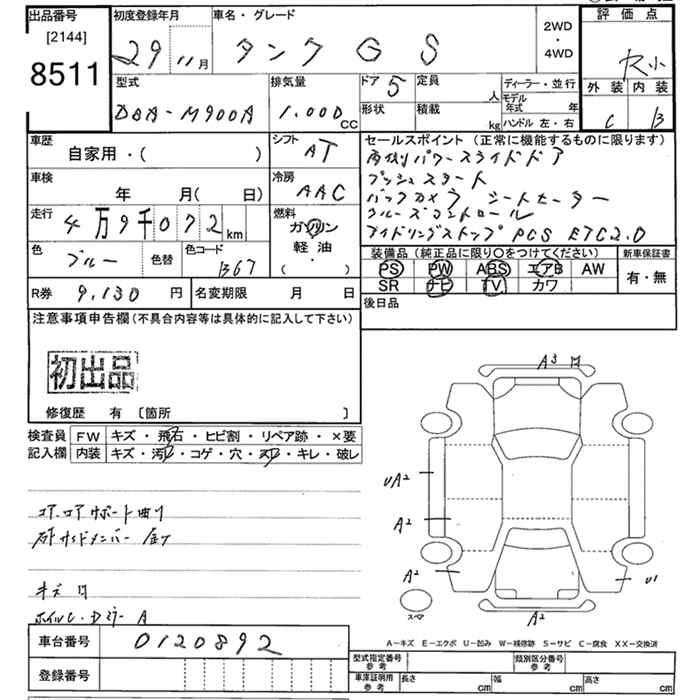 出品番号
[2144]
8511
初度登録年月
29 11月
車名・グレード
タンク G S
2WD
・
4WD
評価点
R小
外装 内装
C B
型式
DBA-M900A
排気量
1.000 CC
ドア 5
定員 人
形状
積載 kg
ディーラー・並行
モデル年式 年
ハンドル 左・右
車歴
自家用・( )
シフト
AT
車検
年 月( 日)
冷房
AAC
走行
4万9千072km
燃料
ガソリン
軽油
・
( )
色
ブルー
色替
色コード
B67
セールスポイント (正常に機能するものに限ります)
両側パワースライドドア
プッシュスタート
バックカメラ シートヒーター
クルーズコントロール
アイドリングストップ PCS ETC2.0
装備品 (純正品に限り○をつけてください)
PS PW ABS エアB AW
SR ナビ TV カワ
新車保証書
有・無
R券 9,130 円
名変期限 月 日
後日品
注意事項申告欄 (不具合内容等は具体的に記入して下さい)
初出品
修復歴 有 [箇所 ]
検査員
記入欄
FW キズ・飛石・ヒビ割・リペア跡・×要
内装 キズ・汚レ・コゲ・穴・スレ・キレ・破レ
コアロアサポート曲り
キズ 凹
A3 凹
UA2
A2
A2
U1
A2
スペア
A-キズ E-エクボ U-凹み W-補修跡 S-サビ C-腐食 XX-交換済
車台番号 0120892
登録番号
型式指定番号
参考
類別区分番号
参考
車庫証明用
参考
長さ cm
幅 cm
高さ cm